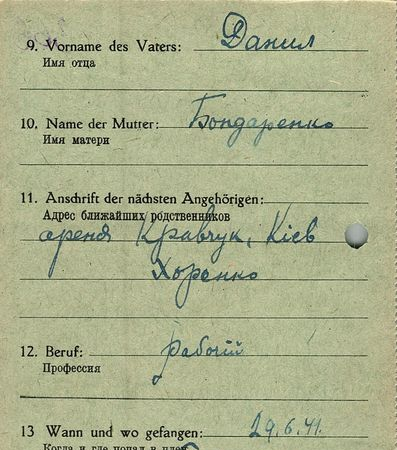 9. Vorname des Vaters: Данил
Имя отца
10. Name der Mutter: Бондаренко
Имя матери
11. Anschrift der nächsten Angehörigen:
Адрес ближайших родственников
Кравчук, Кіев
Хоренко
12. Beruf: рабочій
Профессия
13 Wann und wo gefangen: 29.6.41.
Когда и где попал в плен